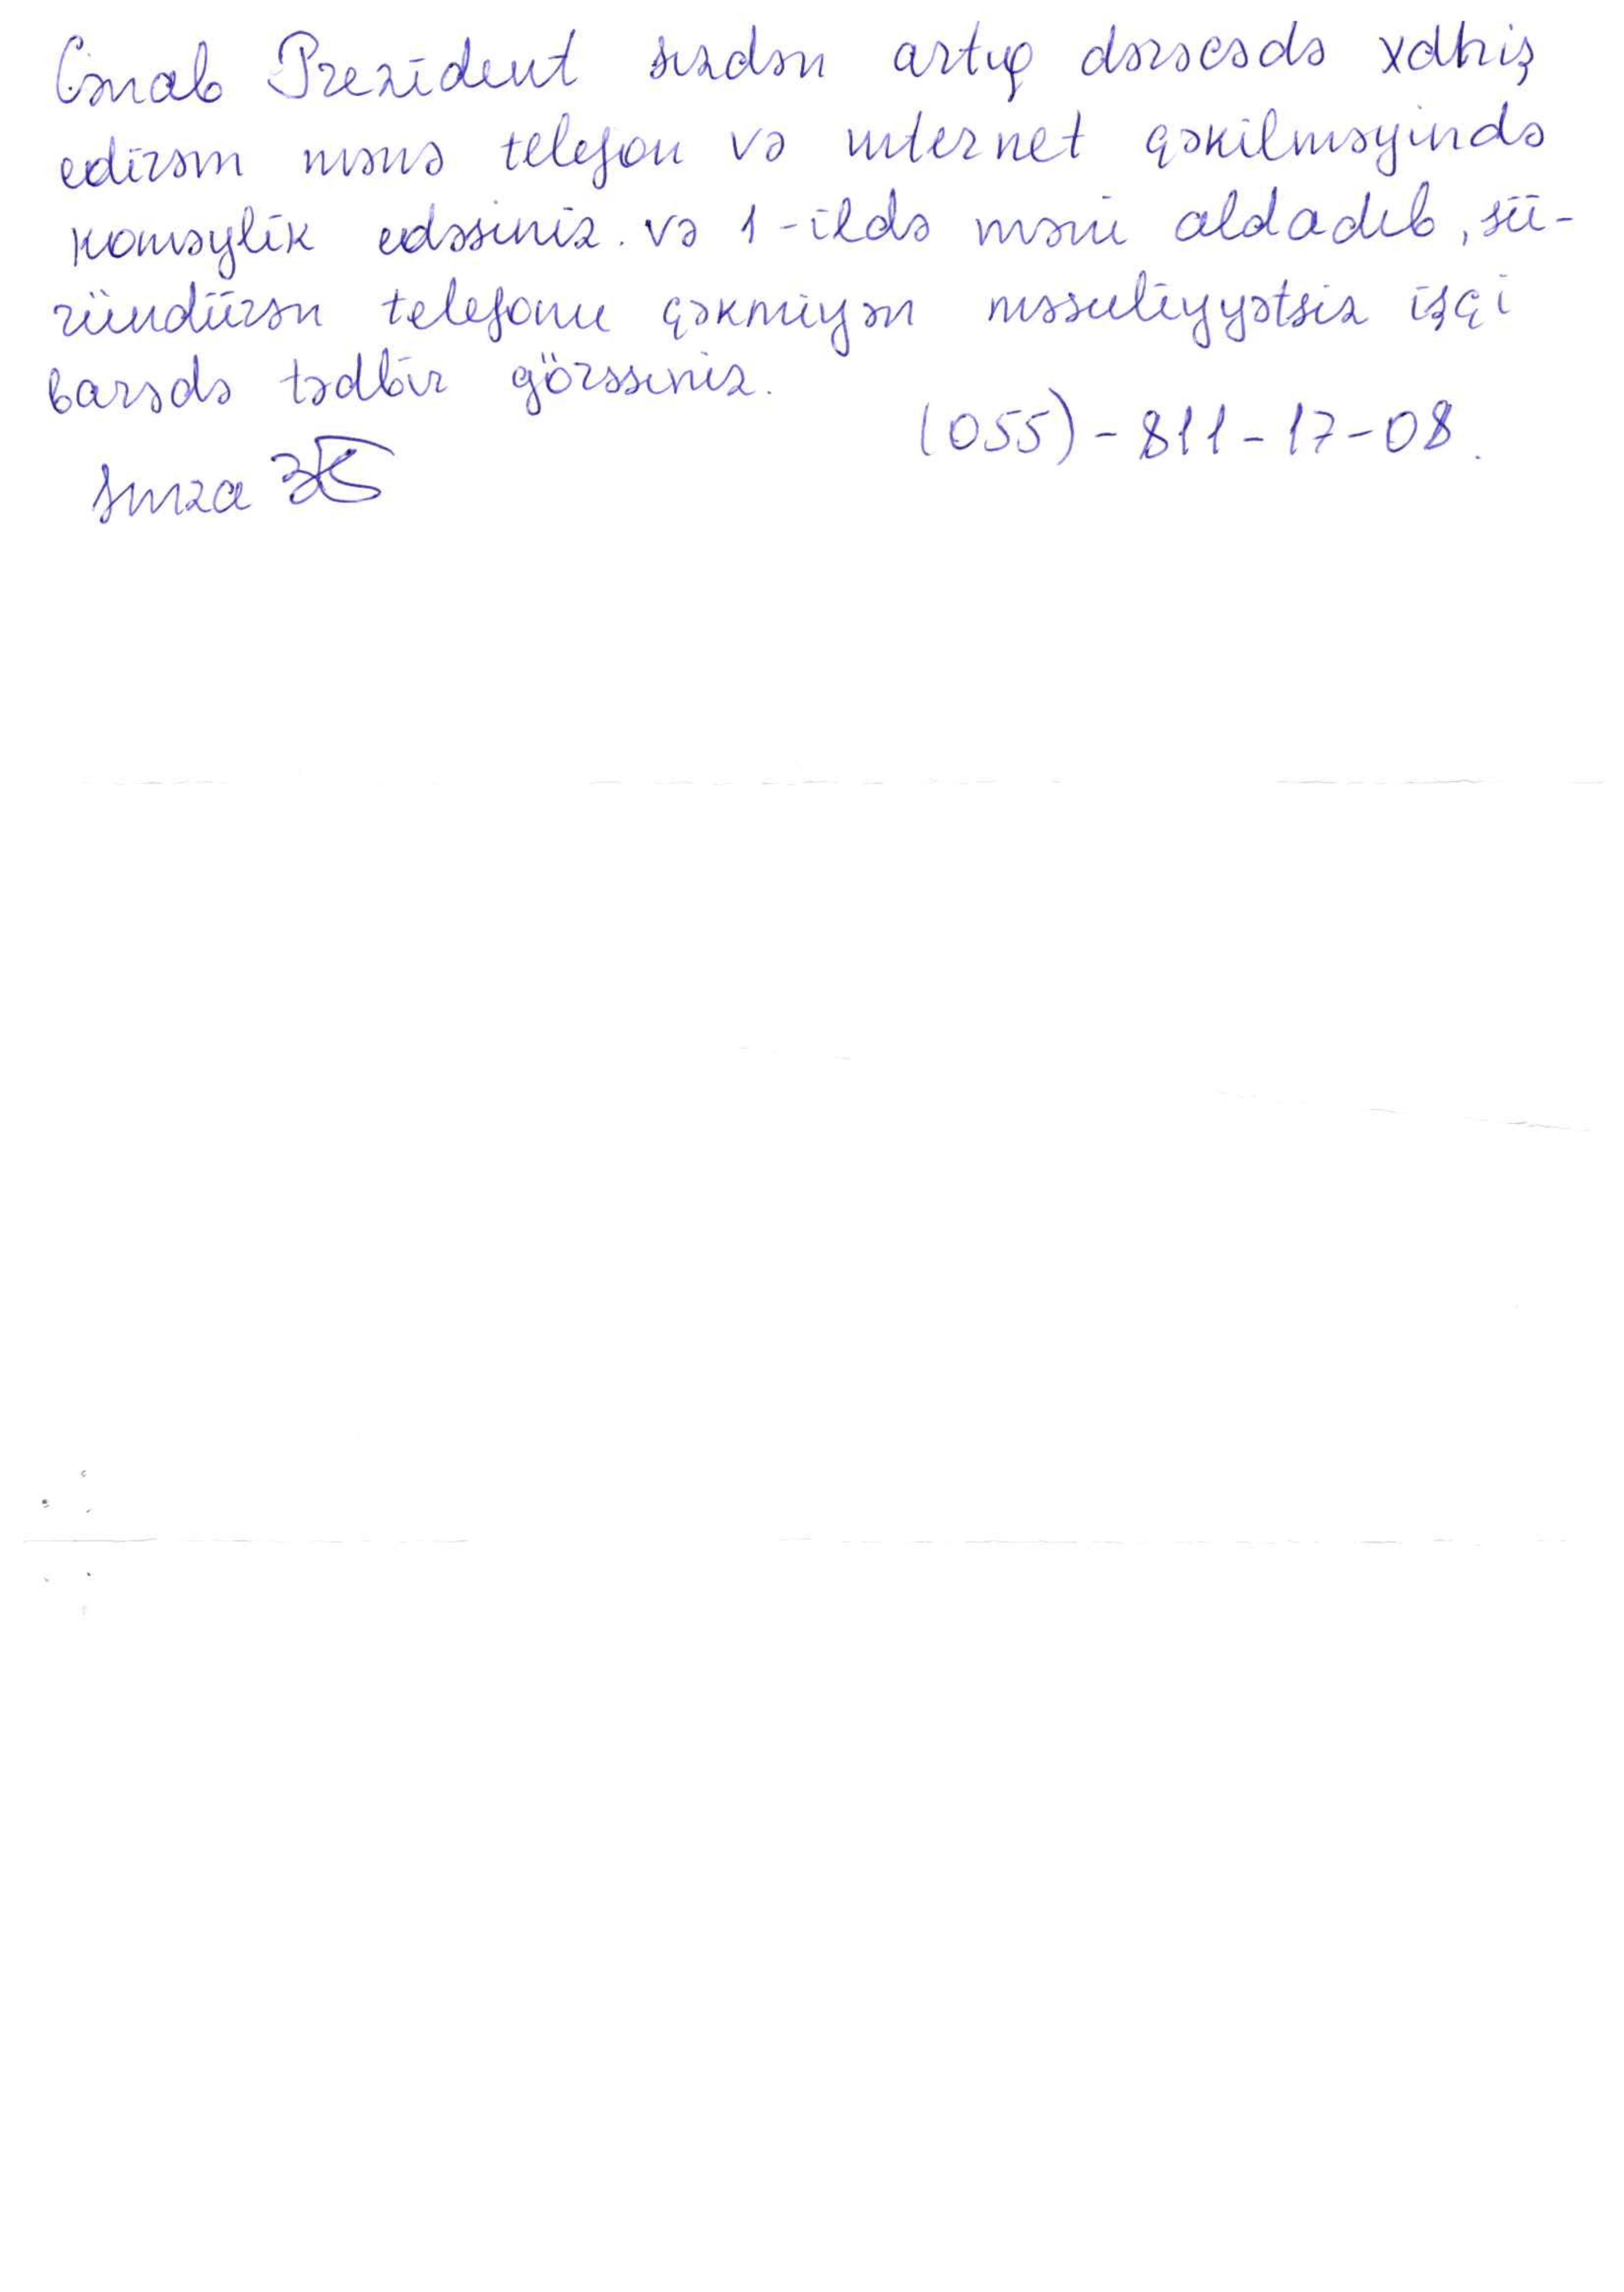 Cənab Prezident sizdən artıq dərəcədə xahiş
edirəm mənə telefon və internet çəkilməyində
koməylik edəsiniz. və 1-ildə məni aldadıb, sü-
ründürən telefonu çəkmiyən məsuliyyətsiz işçi
barədə tədbir görəsiniz.
(055)-811-17-08.
İmza